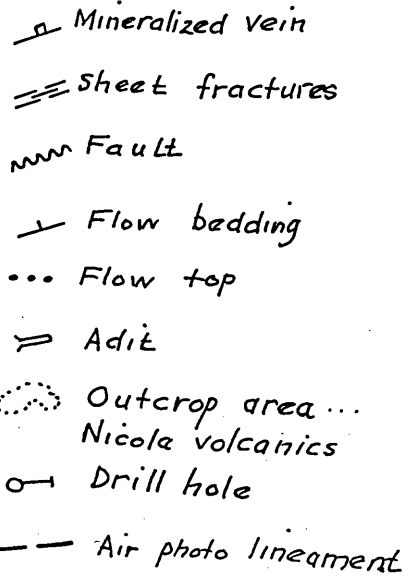 Mineralized vein
Sheet fractures
Fault
Flow bedding
Flow top
Adit
Outcrop area ...
Nicola volcanics
Drill hole
Air photo lineament